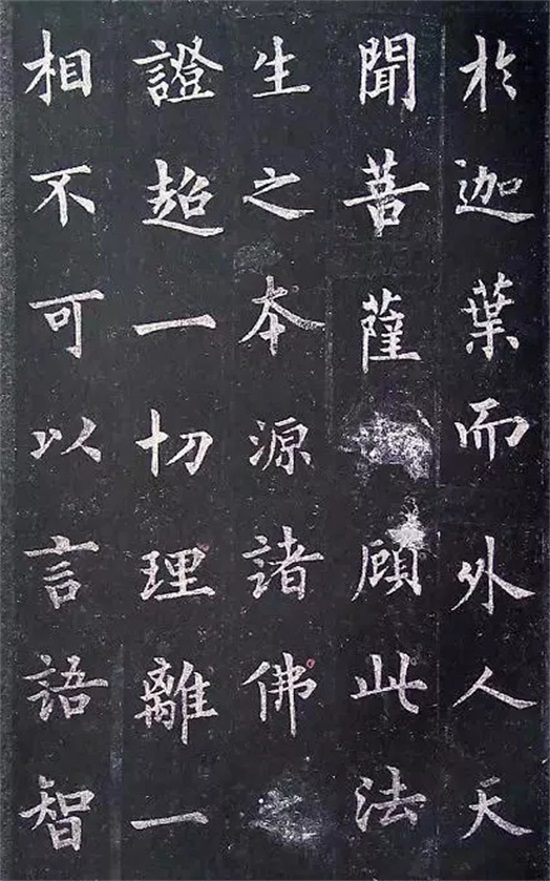 於迦葉而外人天
聞菩薩顧此法
生之本源諸佛
證超一切理離一
相不可以言語智